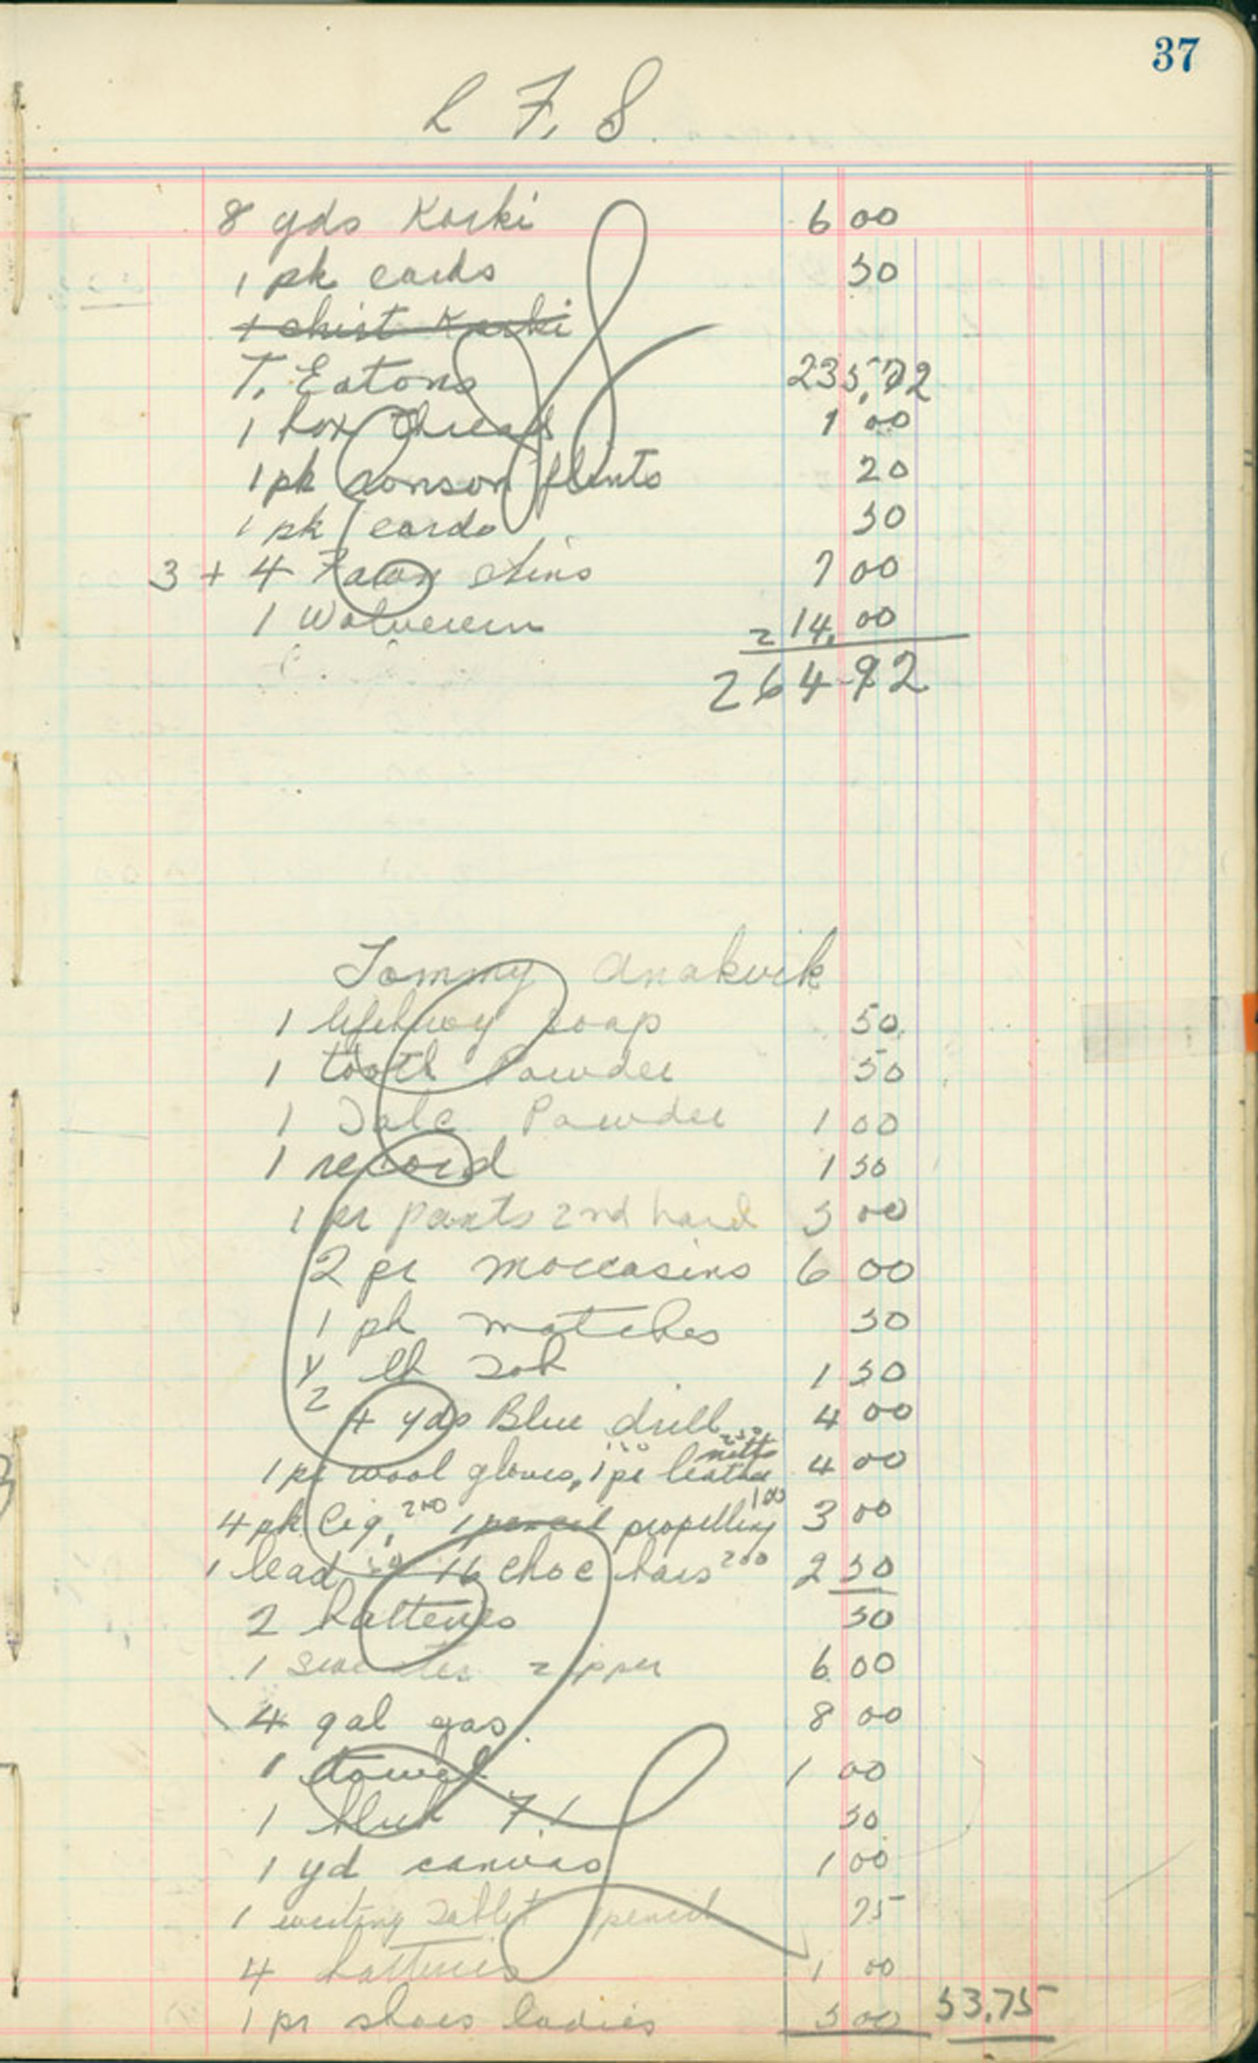 37
L F, S.
8 yds Karki 6 00
1 pk cards 50
1 shirt Karki
T. Eatons 235,72
1 box thread 1 00
1 pk ronson flints 20
1 pk cards 50
3 + 4 Fawn skins 7 00
1 Wolvereen 14.00
264-92
Tommy Anakvik
1 lifebuoy soap 50
1 tooth Powder 50
1 Talc Powder 1 00
1 record 1 50
1 pr pants 2nd hand 5 00
2 pr moccasins 6 00
1 pk matches 50
1/2 lb Tob 1 50
4 yds Blue drill 4 00
1 pr wool gloves, 150 1 pr leather mitts 250 4 00
4 pk Cig, 200 1 pencil propelling 100 3 00
1 lead 50 16 choc bars 200 2 50
2 batteries 50
1 sweater zipper 6 00
4 gal gas 8 00
1 towel 1 00
1 50
1 yd canvas 1 00
1 writing Tablet pencil 75
4 batteries 1 00
1 pr shoes ladies 5 00 53.75